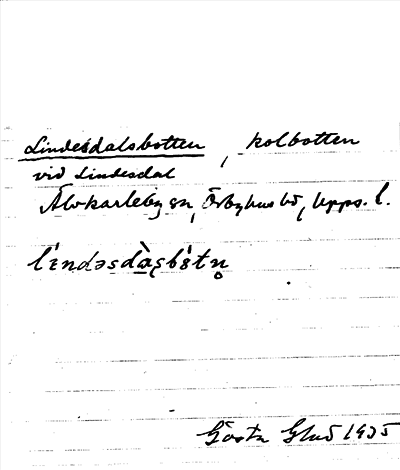 Lindesdalsbotten, kolbotten
vid Lindesdal
Älvkarleby sn, Örbyhus hd, Upps. l.
Gösta 1935